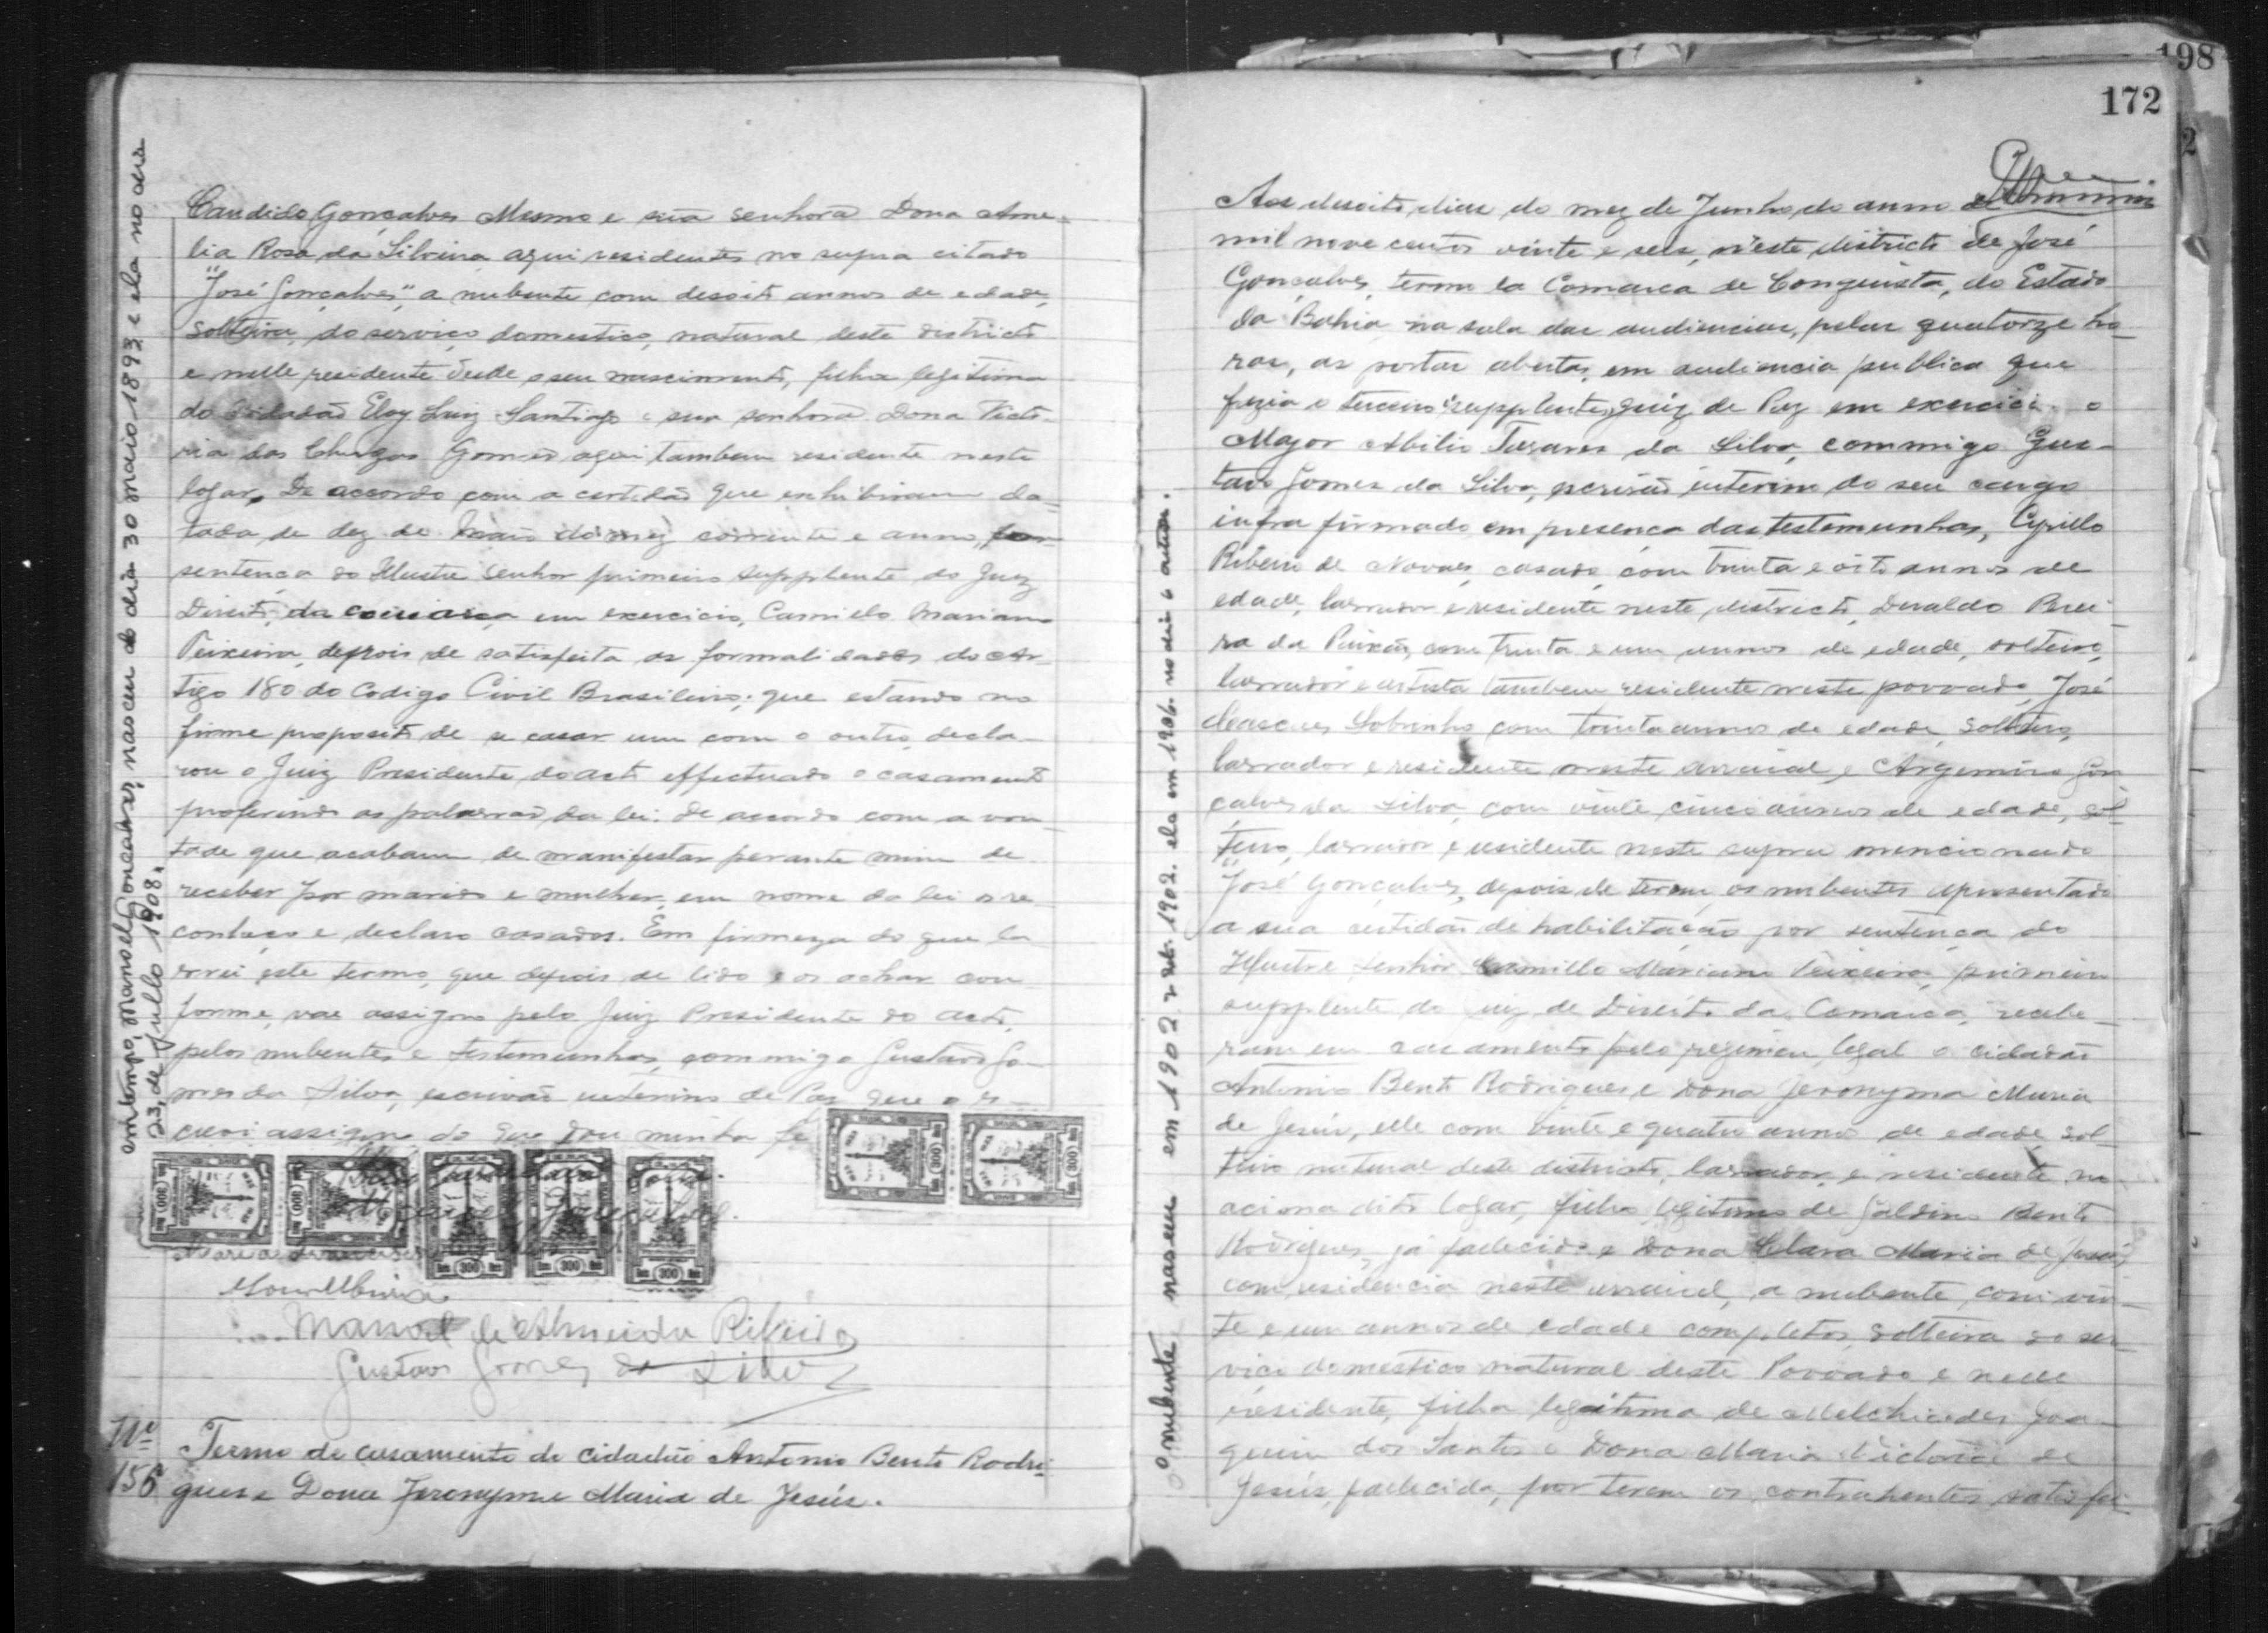 Candido Gonçalves Mesmo e sua senhora Dona Ame-
lia Rosa da Silveira aqui residentes no supra citado
"José Gonçalves," a nubente com desoito annos de edade,
solteira, do serviço domestico, natural deste districto
e nelle residente desde o seu nascimento, filha legitima
do cidadão Eloy Luiz Santiago e sua senhora Dona Victo-
ria das Chagas Gomes aqui tambem residente neste
logar. De accordo com a certidão que exhibiram da-
tada de dez de Maio do mez corrente e anno, por
sentença do Illustre Senhor primeiro supplente do Juiz
Direito, da comarca em exercicio, Camillo Mariano
Teixeira, depois de satisfeita as formalidades do ar-
tigo 180 do Codigo Civil Brasileiro; que estando no
firme proposito de se casar um com o outro, decla-
rou o Juiz Presidente do acto effectuado o casamento
proferindo as palavras da lei: de accordo com a von-
tade que acabam de manifestar perante mim de
receber por marido e mulher, em nome da lei os re-
conheço e declaro casados. Em firmeza do que la-
vrei este termo, que depois de lido e os achar con-
forme, vae assigno pelo Juiz Presidente do acto,
pelos nubentes e testemunhas, commigo Gustavo Go-
mes da Silva, escrivão interino de Paz que o es-
crevi assigno do que dou minha fé
Manoel Gonçalves
Maria
Manoel de Almeida Ribeiro
Gustavo Gomes da Silva
Nº
156
Termo de casamento do cidadão Antonio Bento Rodri-
gues e Dona Jeronyma Maria de Jesús.
em tempo, Manoel Gonçalves, nasceu no dia 30 maio 1893, e ela no dia
23, de julho 1908,
198
172
Aos desoito dias do mez de Junho do anno de
mil nove centos vinte e seis, n'este districto de José
Gonçalves, termo la Comarca de Conquista, do Estado
da Bahia na sala das audiencias, pelas quatorze ho-
ras, as portas abertas, em audiencia publica que
fazia o terceiro supplente, Juiz de Paz em exercicio o
Major Abilio Tavares da Silva, commigo Gus-
tavo Gomes da Silva, escrivão interino do seu cargo
infra firmado em presença das testemunhas, Cyrillo
Ribeiro de Novaes, casado, com trinta e oito annos de
edade, lavrador e residente neste districto, Deraldo Perei-
ra da Paixão, com trinta e um annos de edade, solteiro,
lavrador e artista tambem residente neste povoado, José
Sobrinho com trinta annos de edade, solteiro,
lavrador e residente neste arraial, e Argemiro Gon-
çalves da Silva, com vinte cinco annos de edade, sol-
teiro, lavrador e residente neste supra mencionado
"José Gonçalves, depois de terem os nubentes apresentado
a sua certidão de habilitação por sentença do
Illustre Senhor Camillo Mariano Teixeira, primeiro
supplente do juiz de Direito da Comarca, recebe-
ram em casamento pelo regimen legal o cidadão
Antonio Bento Rodrigues e Dona Jeronyma Maria
de Jesús, elle com vinte e quatro annos de edade sol-
teiro natural deste districto, lavrador e residente no
acima dito logar, filho legitimo de Galdino Bento
Rodrigues, já fallecido e Dona Clara Maria de Jesús
com residencia neste arraial, a nubente, com vin-
te e um annos de edade completos, solteira do ser-
viço domestico natural deste Povoado e nelle
residente, filha legitima de Melchiedes Joa-
quim dos Santos e Dona Maria Victoria de
Jesús, fallecida, por terem os contrahentes satisfei-
O nubente nasceu em 1902 1902. ela em 1906. no dia 6